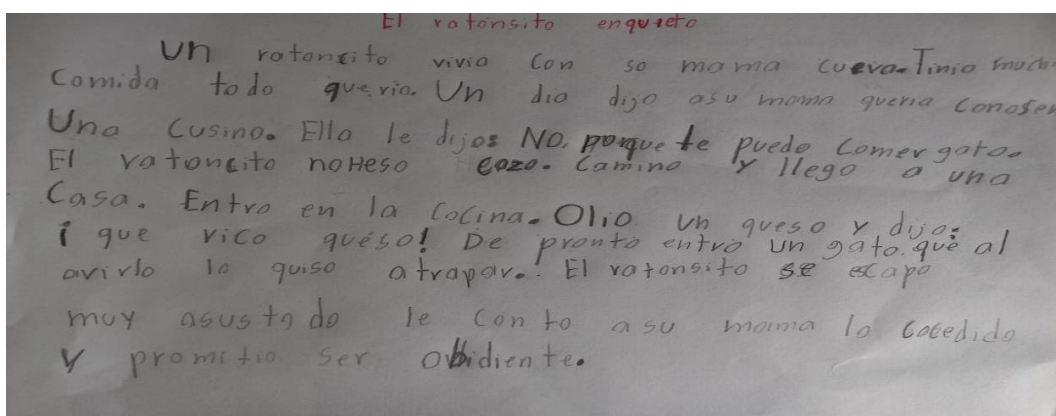 El ratonsito enquieto
Un ratoncito vivia con so mama cueva. Tinia mucha
Comida todo queria. Un dia dijo asu mama queria Conoser
Una Cusina. Ella le dijos NO, porque te puede Comer gato.
El ratoncito noHeso cazo. Camino y llego a una
Casa. Entro en la Cocina. Olio un queso y dijo:
¡ que rico queso! De pronto entro un gato. que al
avirlo lo quiso atrapar. El ratonsito se escapo
muy asustado le Conto a su mama lo cocedido
y promitio ser obidiente.